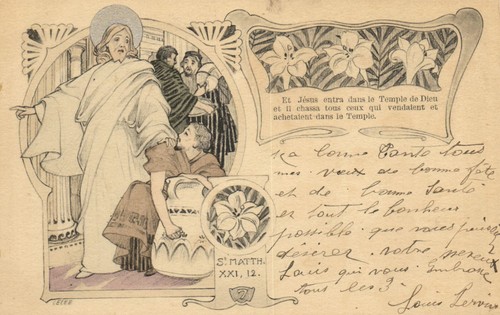 Et Jésus entra dans le Temple de Dieu
et il chassa tous ceux qui vendaient et
achetaient dans le Temple.
St MATTH.
XXI, 12.
bonne Tante tous
mes vœux de bonne fête
et de bonne santé
et tout le bonheur
possible que vous
désirer votre neveux
Louis qui vous embrasse
tous les 3
Louis